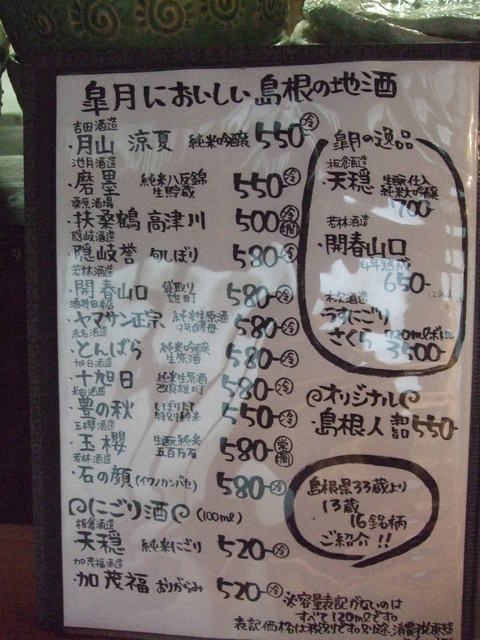 皐月においしい島根の地酒
吉田酒造
・月山 涼夏 純米吟醸 550 冷
池月酒造
・磨墨 純米八反錦 生貯蔵 550- 冷
桑原酒場
・扶桑鶴 高津川 500 冷 燗
隠岐酒造
・隠岐誉 旬しぼり 580- 冷
若林酒造
・開春山口 袋取り 雄町 580- 冷
酒持田本店
・ヤマサン正宗 純米生原酒 9号酵母 580- 冷
赤名酒造
・どんばら 純米吟醸 生原酒 580- 冷
旭日酒造
・十旭日 純米生原酒 改良雄町 580- 冷
米田酒造
・豊の秋 しぼりたて 特別純米 550- 冷
玉櫻酒造
・玉櫻 生酛純米 五百万石 580- 常 燗
若林酒造
・石の顔(イワノカンバセ) 580- 冷
にごり酒 (100ml)
板倉酒造
・天穏 純米にごり 520- 冷
加茂福酒造
・加茂福 おりがらみ 520- 冷
皐月の逸品
板倉酒造
・天穏 生酛仕入 純米大吟醸
700-
若林酒造
・開春山口
4年熟成
650-
木次酒造
・うすにごり
さくら 720mlボトル
3500-
オリジナル
・島根人 550-
島根県33蔵より
13蔵
16銘柄
ご紹介!!
※容量表記がないのは
すべて120mlです
表記価格は税別です